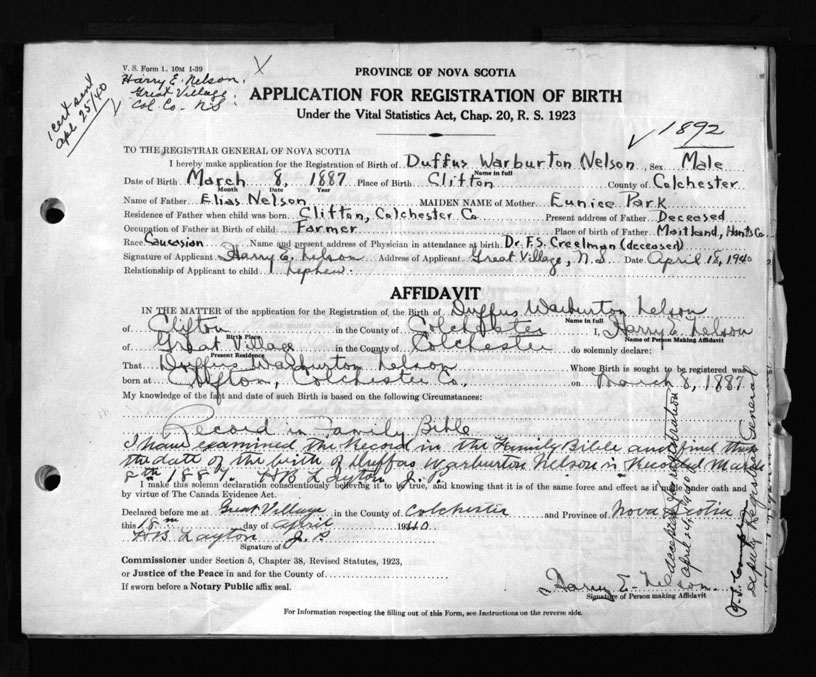 V. S. Form 1. 10M 1-39
Harry E. Nelson.
Great Village
Col. Co. N.S.
1 cert sent
apl 25/40
PROVINCE OF NOVA SCOTIA
APPLICATION FOR REGISTRATION OF BIRTH
Under the Vital Statistics Act, Chap. 20, R. S. 1923
1892
TO THE REGISTRAR GENERAL OF NOVA SCOTIA
I hereby make application for the Registration of Birth of Duffus Warburton Nelson Sex Male
Name in full
Date of Birth March 8, 1887 Place of Birth Clifton County of Colchester
Month Date Year
Name of Father Elias Nelson MAIDEN NAME of Mother Eunice Park
Residence of Father when child was born Clifton, Colchester Co Present address of Father Deceased
Occupation of Father at Birth of child Farmer Place of birth of Father Maitland, Hants Co
Race Caucasian Name and present address of Physician in attendance at birth Dr. F.S. Creelman (deceased)
Signature of Applicant Harry E. Nelson Address of Applicant Great Village, N.S Date April 18, 1940
Relationship of Applicant to child Nephew
AFFIDAVIT
IN THE MATTER of the application for the Registration of the Birth of Duffus Warburton Nelson
Name in full
of Clifton in the County of Colchester I, Harry E. Nelson
Birth Place Name of Person Making Affidavit
of Great Village in the County of Colchester do solemnly declare:
Present Residence
That Duffus Warburton Nelson Whose Birth is sought to be registered was
born at Clifton, Colchester Co. on March 8, 1887
My knowledge of the fact and date of such Birth is based on the following Circumstances:
Record in Family Bible
I have examined the Record in the Family Bible and find that
the date of the birth of Duffas Warburton Nelson is Recorded March
8th 1887. HB Layton J.P.
I make this solemn declaration conscientiously believing it to be true, and knowing that it is of the same force and effect as if under oath and
by virtue of The Canada Evidence Act.
Declared before me at Great Village in the County of Colchester and Province of Nova Scotia
this 18th day of April 1940
HB Layton J.P
Signature of
Commissioner under Section 5, Chapter 38, Revised Statutes, 1923,
or Justice of the Peace in and for the County of
If sworn before a Notary Public affix seal.
Harry E. Nelson.
Signature of Person making Affidavit
For Information respecting the filling out of this Form, see Instructions on the reverse side.
Accepted for registration
April 24, 1940
Deputy Registrar General